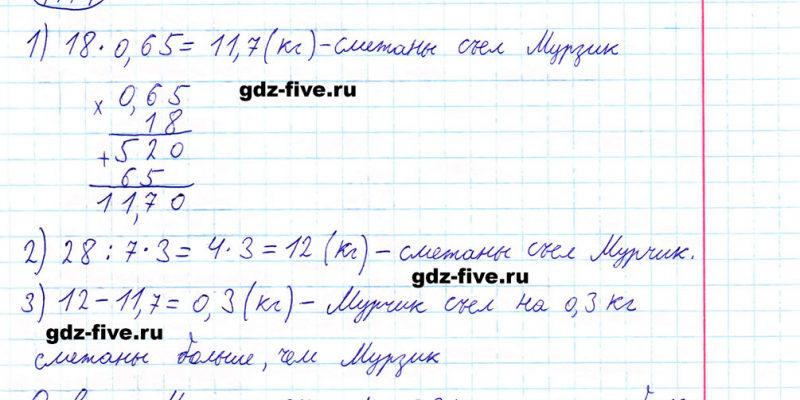 1) 18 · 0,65 = 11,7 (кг) – сметаны съел Мурзик
gdz-five.ru
× 0,65
18
+ 520
65
11,70
2) 28 : 7 · 3 = 4 · 3 = 12 (кг) – сметаны съел Мурчик.
gdz-five.ru
3) 12 – 11,7 = 0,3 (кг) – Мурчик съел на 0,3 кг
gdz-five.ru
сметаны больше, чем Мурзик